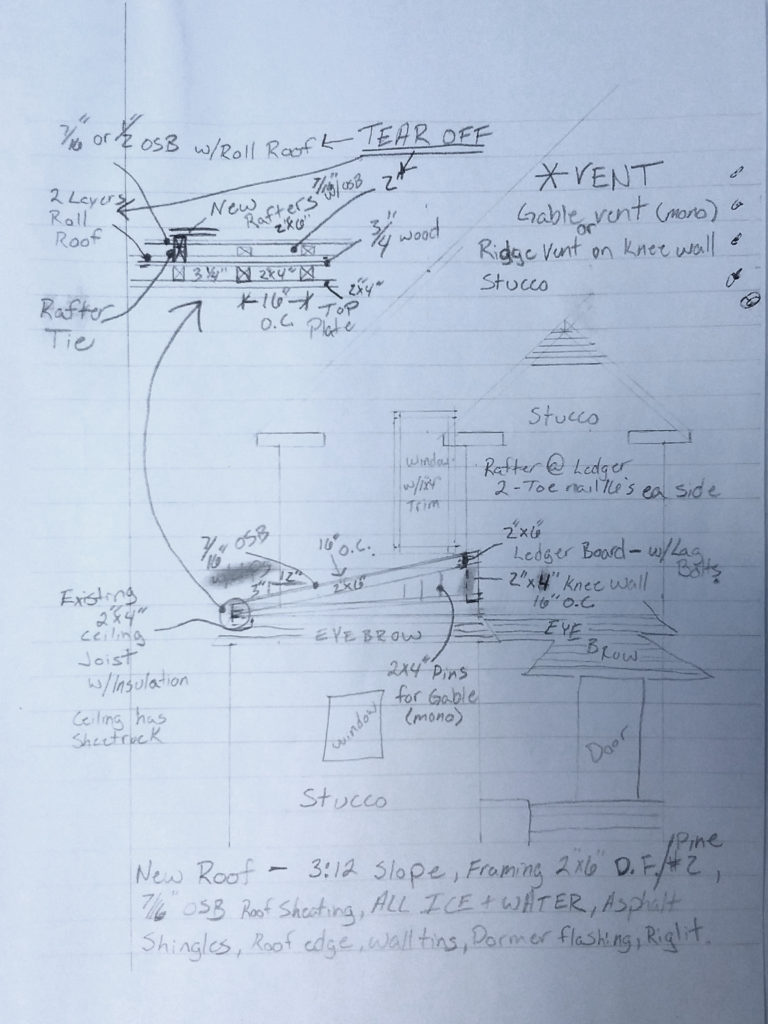 7/16" or 1/2 OSB w/Roll Roof ← TEAR OFF
2 Layers
Roll
Roof
New
Rafters
2"x6"
7/16" w/OSB
2"
3/4" wood
3 1/4"
2"x4"
*16"*
O.C.
2x4"
Top
Plate
Rafter
Tie
*VENT
Gable vent (mono)
or
Ridge Vent on Knee wall
Stucco
Stucco
Window
w/1x4"
Trim
Rafter @ Ledger
2-Toe nail 16's ea side
7/16" OSB
16" O.C.
3" 12"
2"x6"
2"x6"
Ledger Board - w/Lag
Bolts
2"x4" Knee wall
16" O.C
Existing
2"x4"
Ceiling
Joist
w/Insulation
Ceiling has
Sheetrock
E
EYEBROW
EYE
BROW
2x4" Pins
for Gable
(mono)
Window
Door
Stucco
New Roof - 3:12 Slope, Framing 2"x6" D.F./Pine #2,
7/16" OSB Roof Sheating, ALL ICE + WATER, Asphalt
Shingles, Roof edge, Wall tins, Dormer flashing, Riglit.